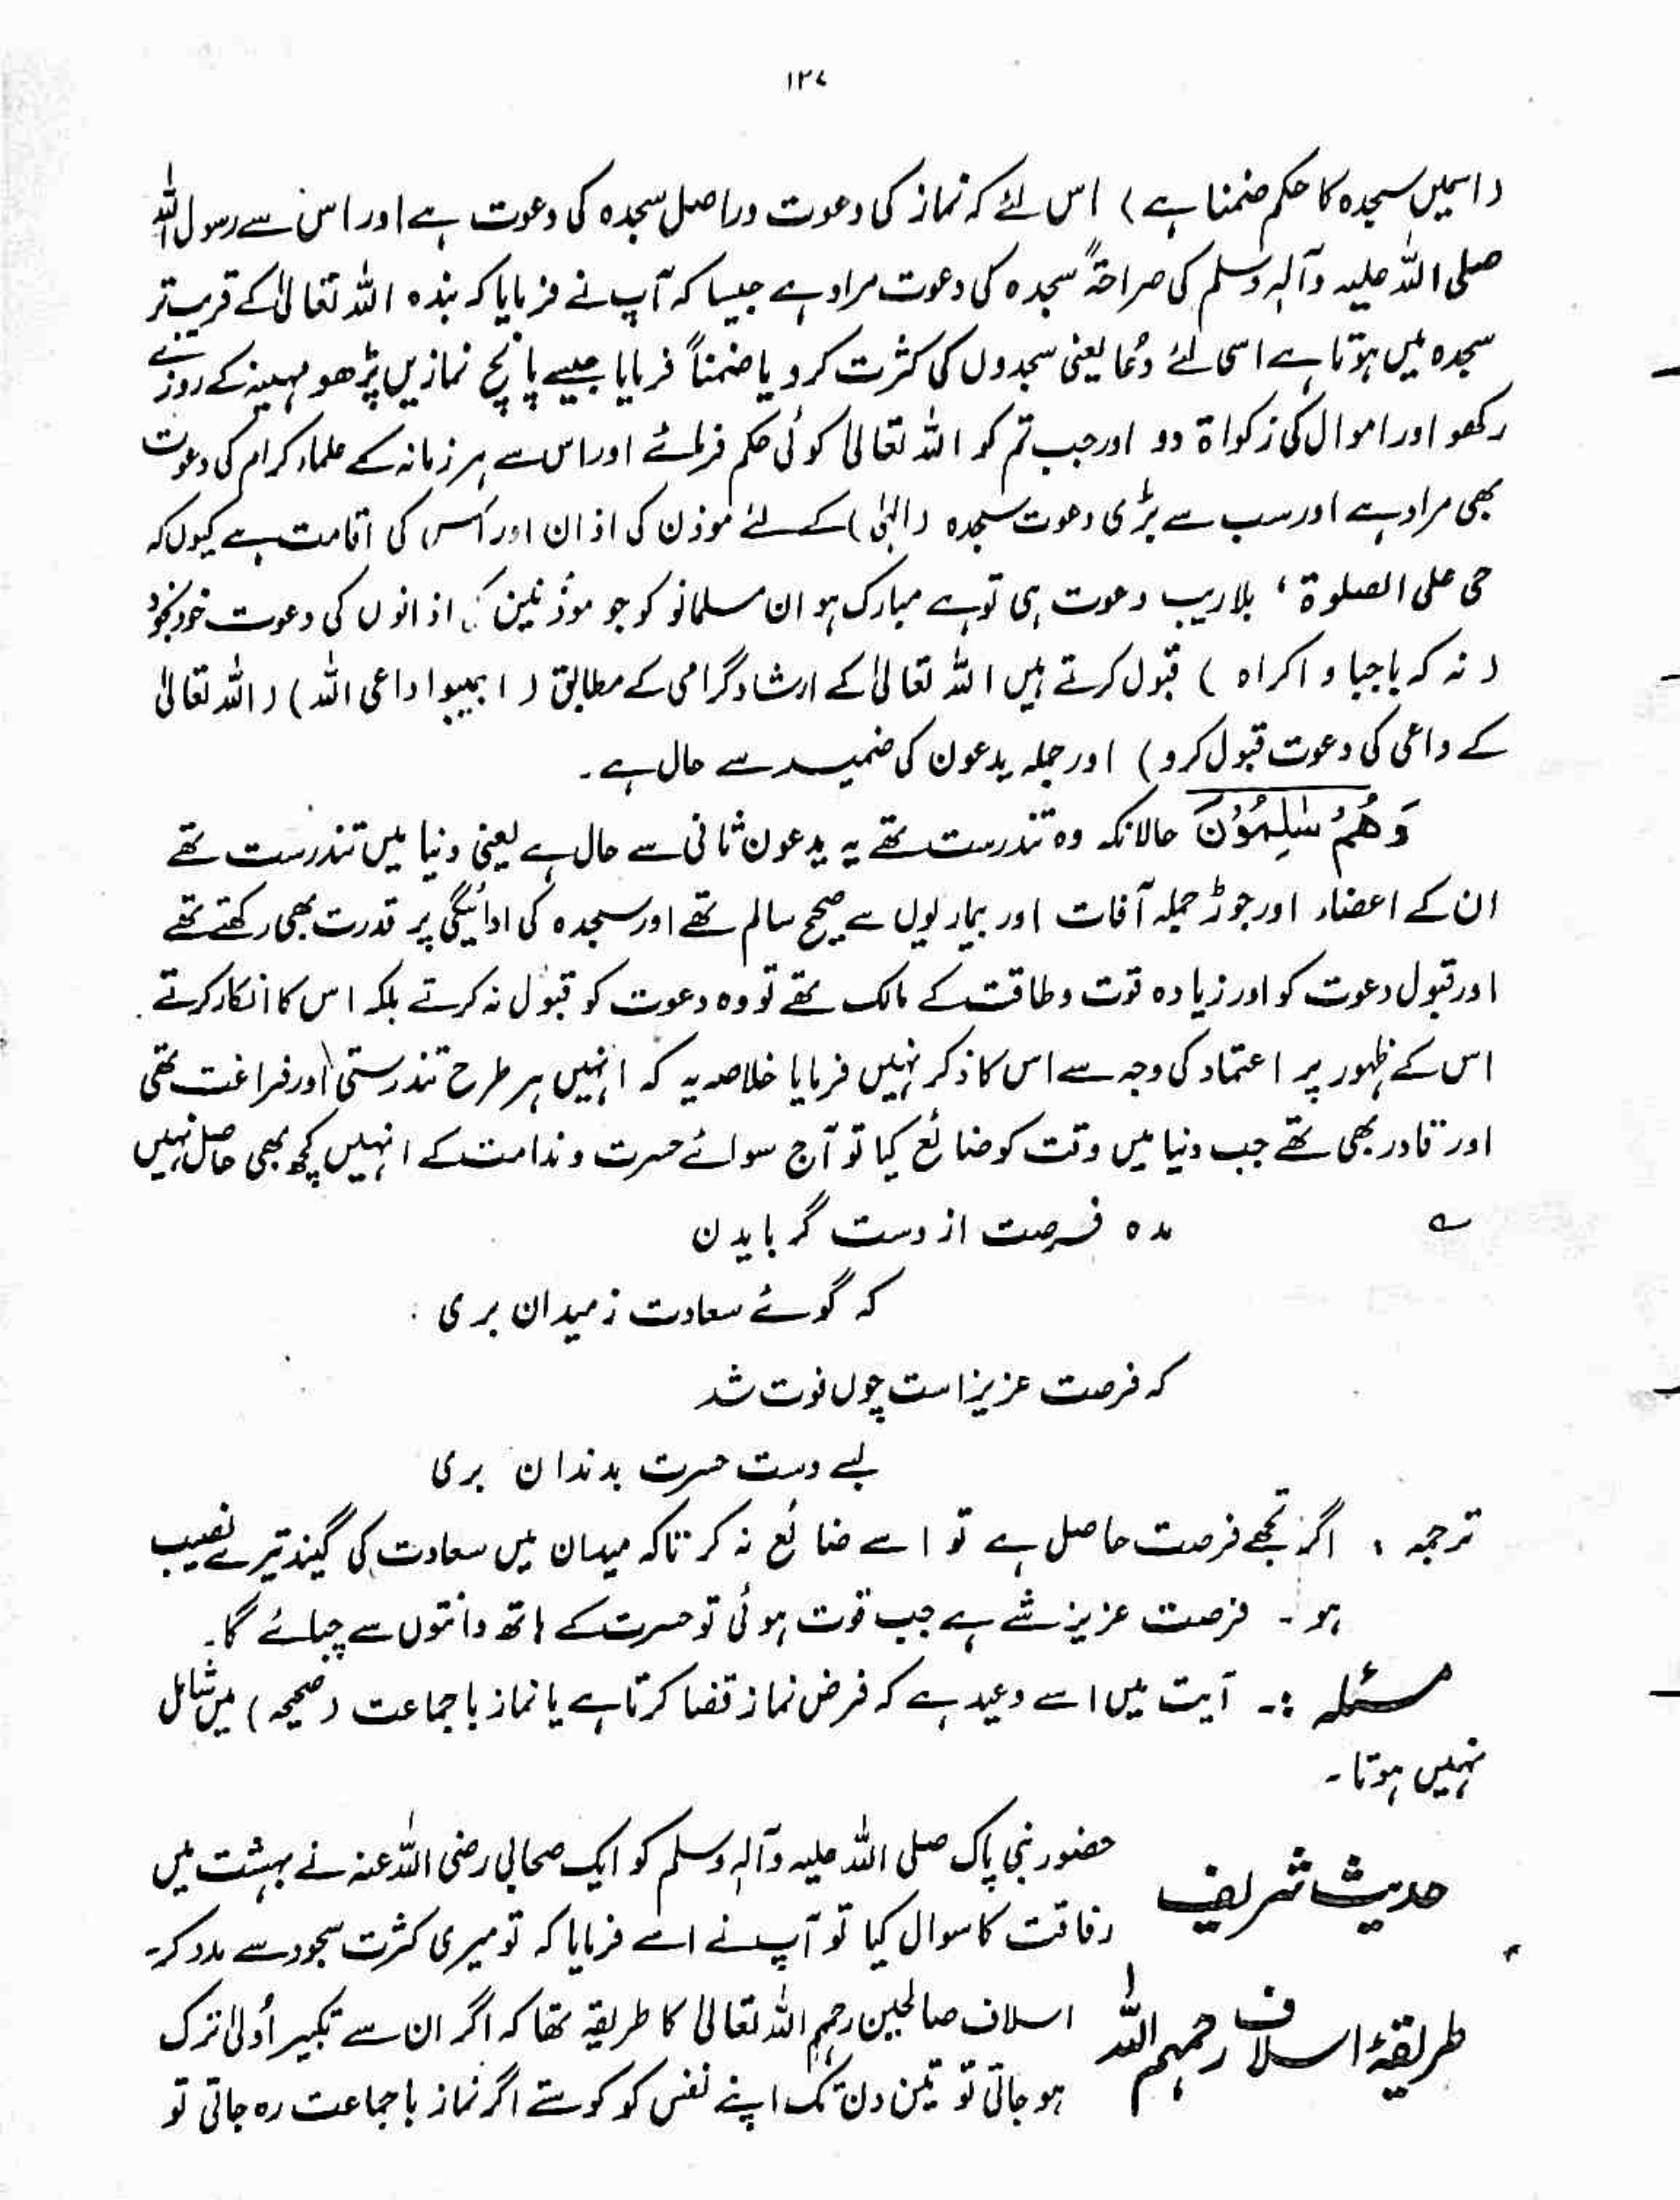 ۱۲۷
(اسمیں سجدہ کا حکم ضمنا ہے) اس لئے کہ نماز کی دعوت دراصل سجدہ کی دعوت ہے اور اس سے رسول اللہ
صلی اللہ علیہ وآلہٖ وسلم کی صراحۃً سجدہ کی دعوت مراد ہے جیسا کہ آپ نے فرمایا کہ بندہ اللہ تعالیٰ کے قریب تر
سجدہ میں ہوتا ہے اسی لئے دُعا یعنی سجدوں کی کثرت کرو یا ضمناً فرمایا جیسے پانچ نمازیں پڑھو مہینہ کے روزے
رکھو اور اموال کی زکواۃ دو اور جب تم کو اللہ تعالیٰ کوئی حکم فرمائے اور اس سے ہر زمانہ کے علماء کرام کی دعوت
بھی مراد ہے اور سب سے بڑی دعوت سجدہ (الہٰی) کے لئے موذن کی اذان اور اس کی اقامت ہے کیوں کہ
حی علی الصلوۃ، بلاریب دعوت ہی تو ہے مبارک ہو ان مسلمانو کو جو موذنین کی اذانوں کی دعوت خود بخود
(نہ کہ باجبا و اکراہ) قبول کرتے ہیں اللہ تعالیٰ کے ارشاد گرامی کے مطابق (اجیبوا داعی اللہ) (اللہ تعالیٰ
کے داعی کی دعوت قبول کرو) اور جملہ یدعون کی ضمیر سے حال ہے۔
وَهُمْ سٰلِمُوْنَ حالانکہ وہ تندرست تھے یہ یدعون ثانی سے حال ہے یعنی دنیا میں تندرست تھے
ان کے اعضاء اور جوڑ جملہ آفات اور بیماریوں سے صحیح سالم تھے اور سجدہ کی ادائیگی پر قدرت بھی رکھتے تھے
اور قبول دعوت کو اور زیادہ قوت و طاقت کے مالک تھے تو وہ دعوت کو قبول نہ کرتے بلکہ اس کا انکار کرتے۔
اس کے ظہور پر اعتماد کی وجہ سے اس کا ذکر نہیں فرمایا خلاصہ یہ کہ انہیں ہر طرح تندرستی اور فراغت تھی
اور قادر بھی تھے جب دنیا میں وقت کو ضائع کیا تو آج سوائے حسرت و ندامت کے انہیں کچھ بھی حاصل نہیں
؎ مدہ فرصت از دست گر بایدن
کہ گوئے سعادت ز میدان بری
کہ فرصت عزیز است چوں فوت شد
بسے دست حسرت بدندان بری
ترجمہ : اگر تجھے فرصت حاصل ہے تو اسے ضائع نہ کر تاکہ میدان میں سعادت کی گیند تیرے نصیب
ہو۔ فرصت عزیز شے ہے جب فوت ہوئی تو حسرت کے ہاتھ دانتوں سے چبائے گا۔
مسئلہ :۔ آیت میں اسے وعید ہے کہ فرض نماز قضا کرتا ہے یا نماز باجماعت (صحیحہ) میں شامل
نہیں ہوتا۔
حدیث شریف حضور نبی پاک صلی اللہ علیہ وآلہٖ وسلم کو ایک صحابی رضی اللہ عنہ نے بہشت میں
رفاقت کا سوال کیا تو آپ نے اسے فرمایا کہ تو میری کثرت سجود سے مدد کر۔
طریقۂ اسلاف رحمہم اللہ اسلاف صالحین رحمہم اللہ تعالیٰ کا طریقہ تھا کہ اگر ان سے تکبیر اُولیٰ ترک
ہو جاتی تو تین دن تک اپنے نفس کو کوستے اگر نماز باجماعت رہ جاتی تو